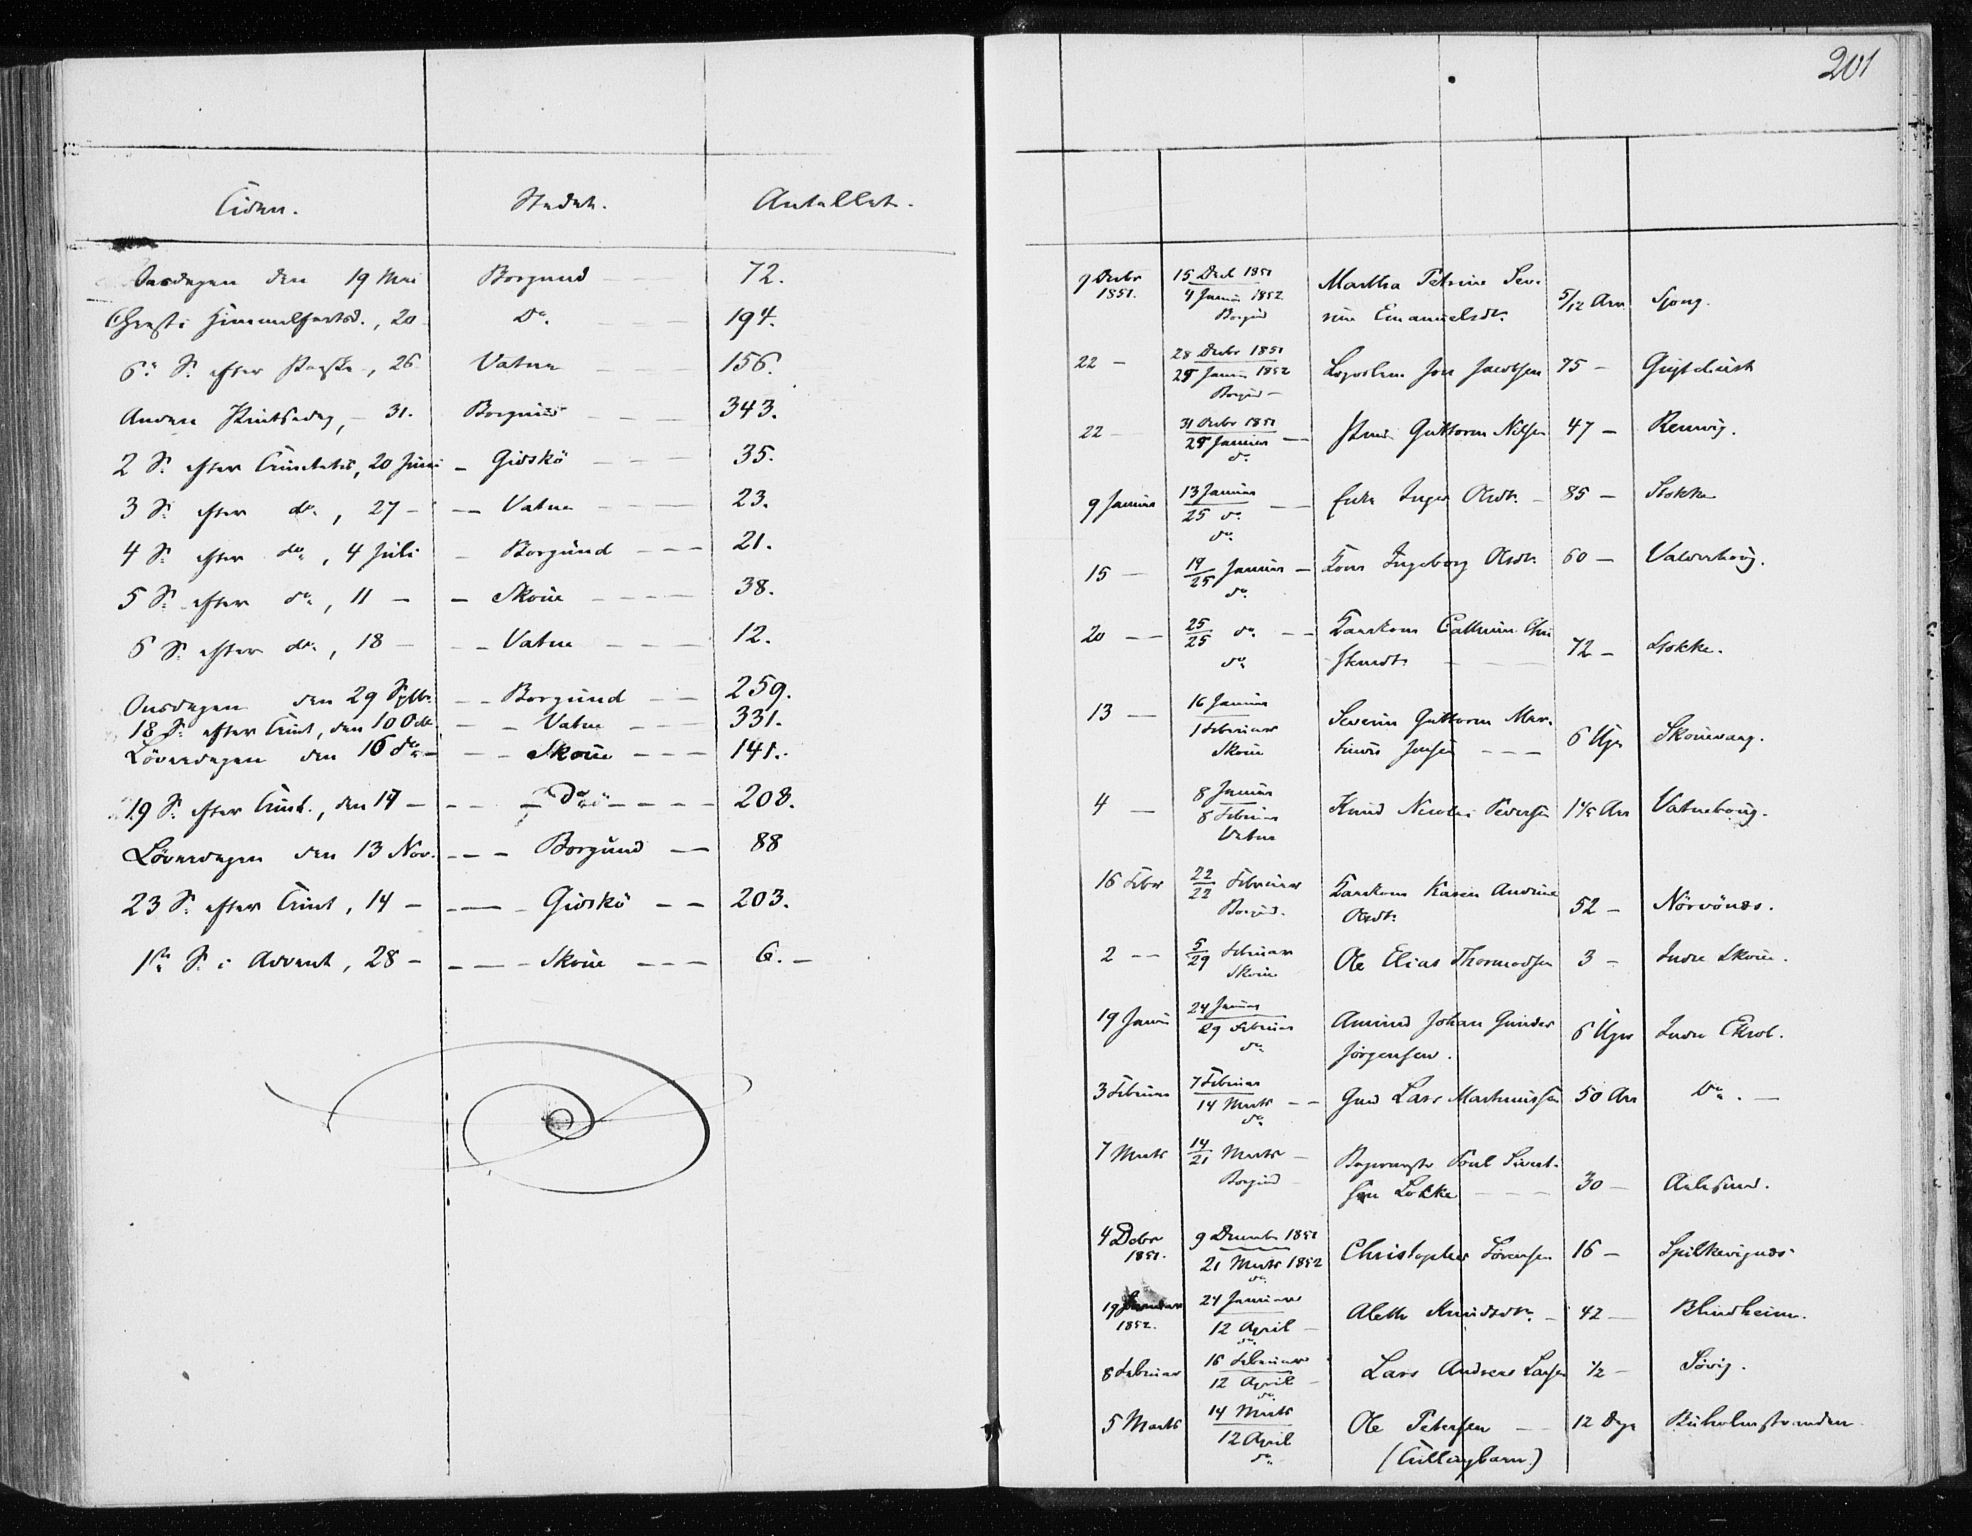 201
Tiden. Stedet. Antallet.
Onsdagen den 19 Mai Borgund 72.
Christi Himmelfartsd., 20 Do. 194.
6te S. efter Paaske, 26 Vatne 156.
Anden Pintsedag, 31. Borgund 343.
2 S. efter Trinitatis, 20 Juni Gidskö 35.
3 S. efter do., 27 Vatne 23.
4 S. efter do., 4 Juli Borgund 21.
5 S. efter do., 11 Skoue 38.
6 S. efter do., 18 Vatne 12.
Onsdagen den 29 Septbr. Borgund 259.
18 S. efter Trint, den 10 Octb. Vatne 331.
Löverdagen den 16 do. Skoue 141.
19 S. efter Trint., den 17 Do. 208.
Löverdagen den 13 Nov. Borgund 88
23 S. efter Trint, 14 Gidskö 203.
1ste S. i Advent, 28 Skoue 6.
9 Decbr 15 Decb 1851 Martha Petrine Seve-
1851. 4 Januar 1852 rine Emanuelsdtr. 5/12 Aar. Sjong.
Borgund
22 28 Decbr 1851
25 Januar 1852 Jon Jacobsen 75
Borgund
22 31 Decbr 1851
25 Januar Guttorm Nilsen 47 Remvig.
do.
9 Januar 13 Januar
25 do. Enke Inger Olsdtr. 85 Stokke
do.
15 19/25 Januar Kone Ingeborg Olsdtr. 60 Valderhoug.
do.
20 25/25 do. Cathrine Chri-
do. stensdtr. 72 Stokke.
13 16 Januar
1 Februar Severin Guttorm Mar-
Skoue tinus Jensen 6 Uger Skouevaag.
4 8 Januar
8 Februar Knud Nicolai Pedersen Aar Vatnehoug.
Vatne
16 Febr 22/22 Februar Karen Andrine
Borgund. Olsdtr. 52 Nörvönæs.
2 5/29 Februar
Skoue Ole Elias Thormodsen 3 Indre Skoue.
19 Januar 24 Januar
29 Februar Amund Johan Gunder
do. Jörgensen. 6 Uger Indre Ekrol.
3 Februar 7 Februar
14 Marts Gmd Lars Martinussen 50 Aar Do.
do.
7 Marts 14/21 Marts Poul Sivert-
Borgund sen Lökke 30 Aalesund.
4 Dcbr 9 December 1851
1851. 21 Marts 1852 Christopher Sörensen 16 Spilkevignæs
do.
19 Januar 24 Januar
1852. 12 April Aleth Knudsdtr. 42 Blindheim.
do.
8 Februar 16 Februar
12 April Lars Andreas Larsen 1/2 Sövig.
do.
5 Marts 14 Marts
12 April Ole Petersen 12 Dage Buholmstranden
do. (Tvillingbarn.)